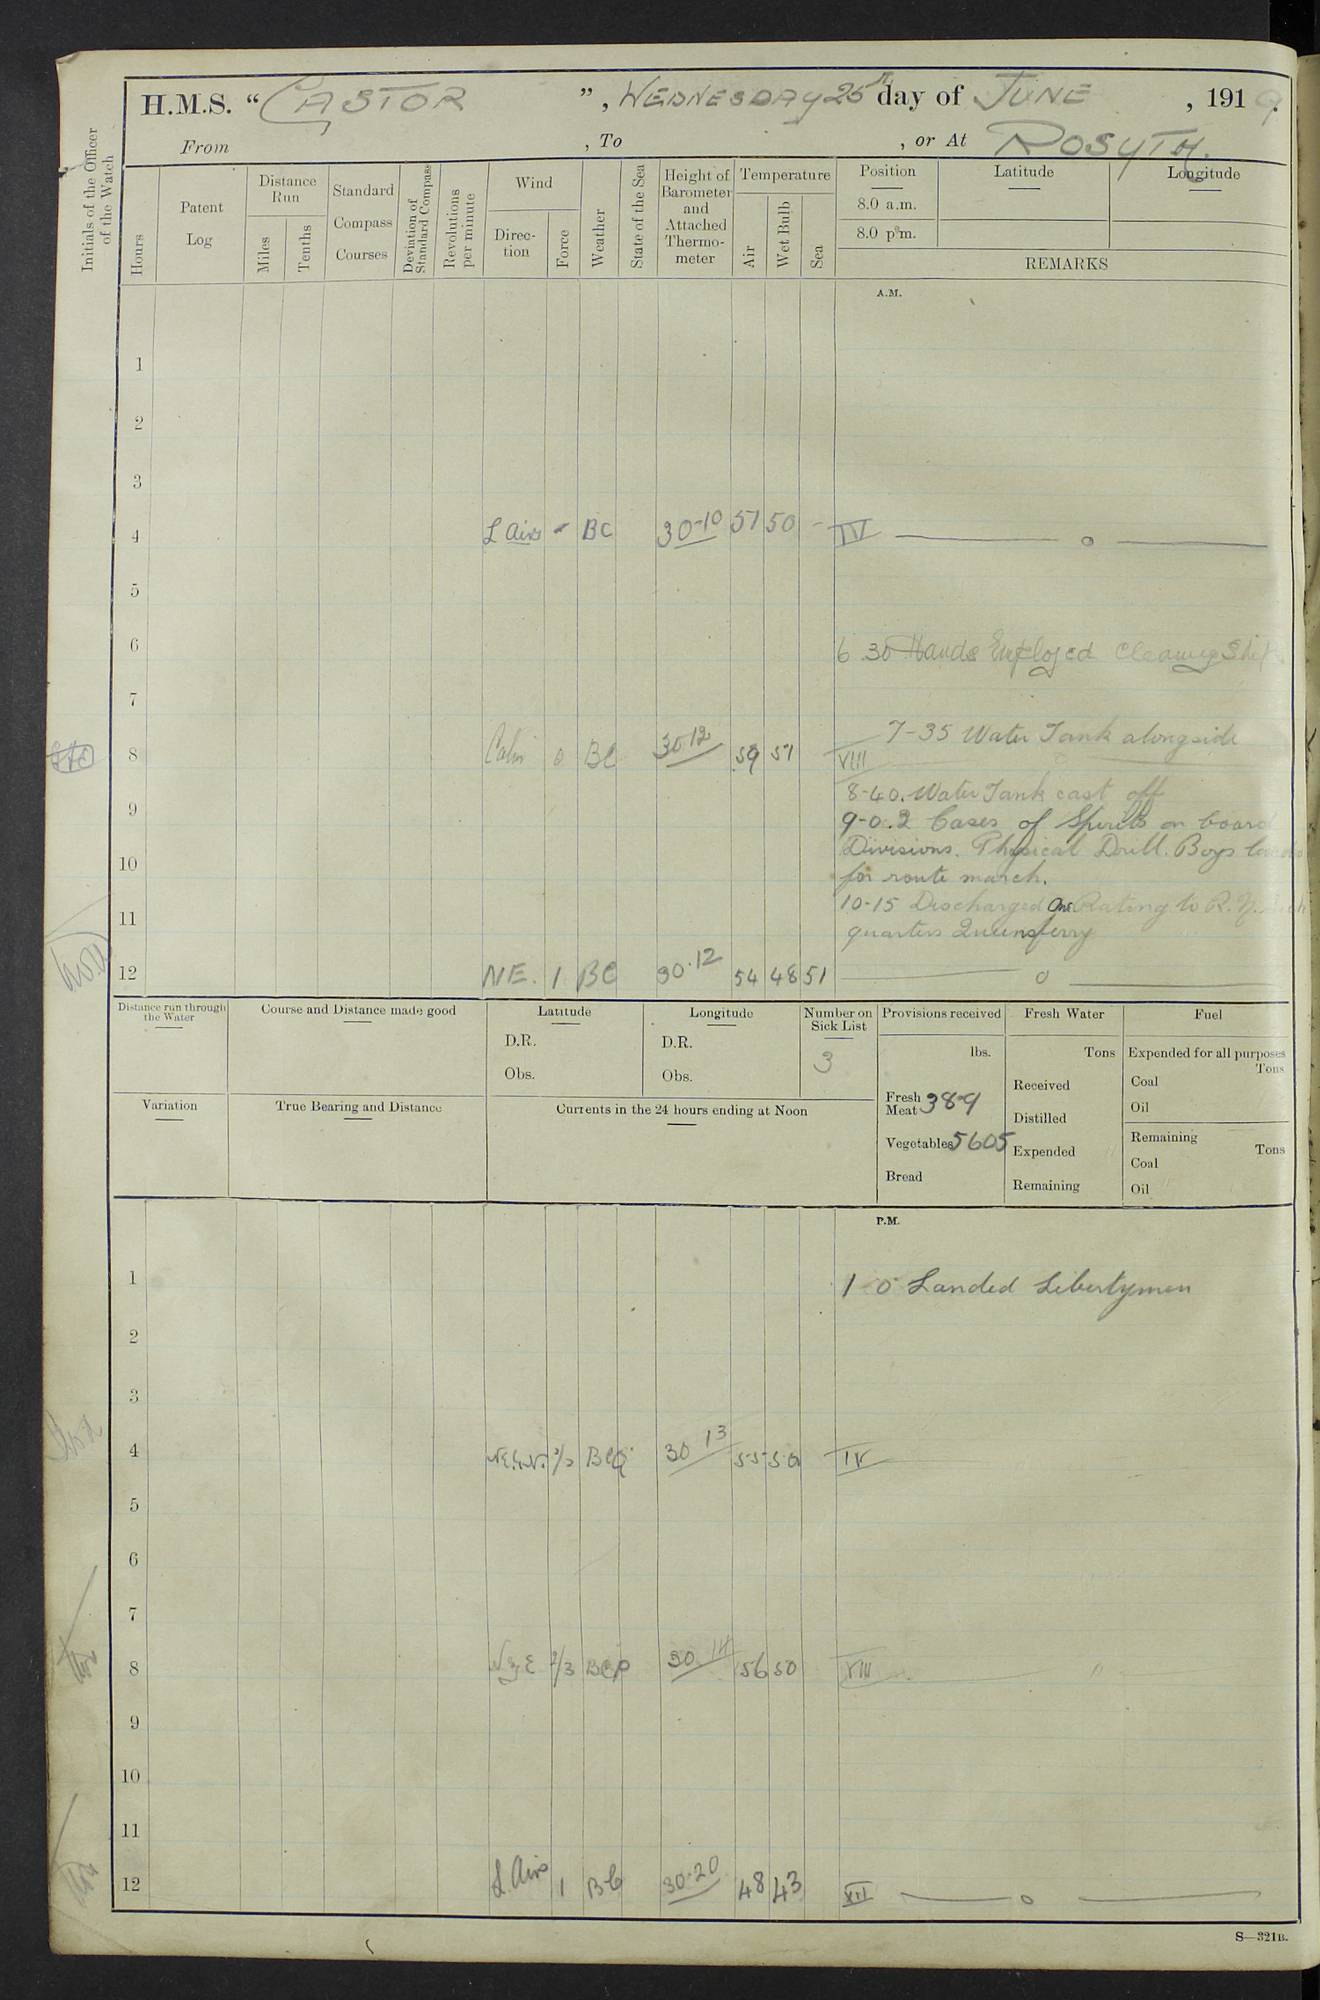 H.M.S. “CASTOR”, WEDNESDAY 25th day of JUNE, 1919.
From , To , or At ROSYTH.
Initials of the Officer of the Watch
Hours
Patent Log
Distance Run
Miles
Tenths
Standard Compass Courses
Deviation of Standard Compass
Revolutions per minute
Wind
Direc-tion
Force
Weather
State of the Sea
Height of Barometer and Attached Thermo-meter
Temperature
Air
Wet Bulb
Sea
Position
8.0 a.m.
8.0 p.m.
Latitude
Longitude
REMARKS
A.M.
1
2
3
4 L Airs - BC 30-10 51 50 - IV
5
6 6 30 Hands Employed Cleaning Ship
7
7-35 Water Tank alongside
8 Calm 0 BC 30 12 59 51 VIII
8-40. Water Tank cast off
9 9-0. 2 Cases of Spirits on board
10 Divisions. Physical Drill. Boys
for route march.
11 10-15 Discharged One Rating to R.N.
quarters Queensferry
12 NE. 1 BC 30.12 54 48 51 0
Distance run through the Water
Course and Distance made good
Latitude
D.R.
Obs.
Longitude
D.R.
Obs.
Number on Sick List
3
Provisions received
lbs.
Fresh Meat 389
Vegetables 5605
Bread
Fresh Water
Tons
Received
Distilled
Expended
Remaining
Fuel
Expended for all purposes
Tons
Coal
Oil
Remaining
Tons
Coal
Oil
Variation
True Bearing and Distance
Currents in the 24 hours ending at Noon
P.M.
1 1-0 Landed Libertymen
2
3
4 2/3 30 13 55 50 IV
5
6
7
8 N by E 2/3 BCP 30.14 56 50 VIII "
9
10
11
12 L. Airs 1 BC 30.20 48 43 XII 0
S—321B.